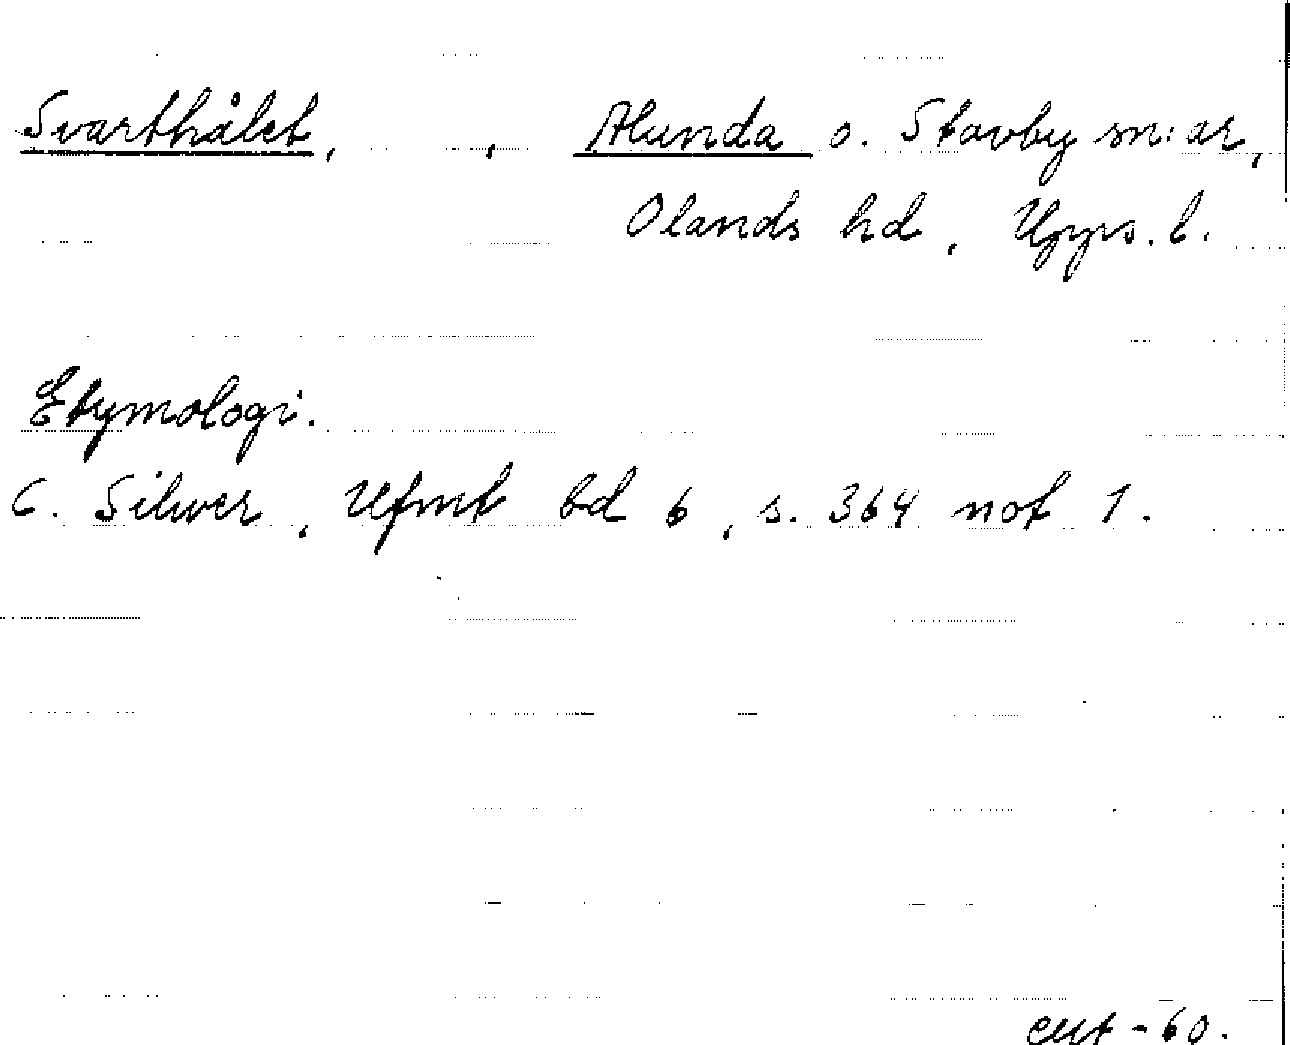 Svarthålet, , Alunda o. Stavby sn:ar,
Olands hd, Upps. l.
Etymologi.
C. Silwer, Ufmt bd 6, s. 364 not 1.
-60.